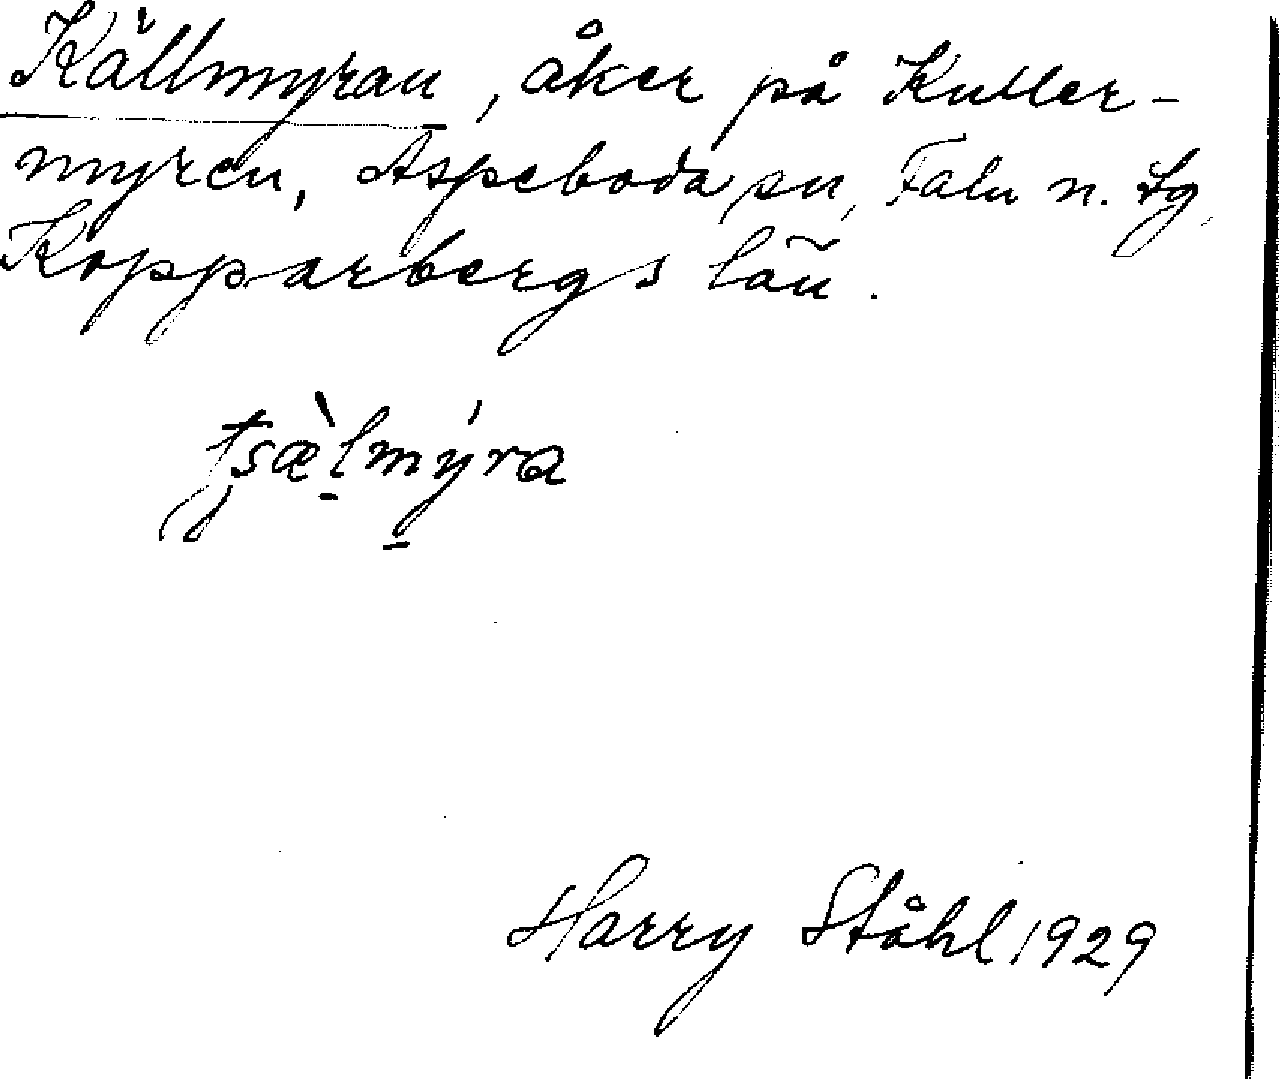 Källmyran, åker på Kuller-
myren, Aspeboda sn, Falu n. tg,
Kopparbergs län.
tʂæ̀l̠mý̠ra
Harry Ståhl 1929